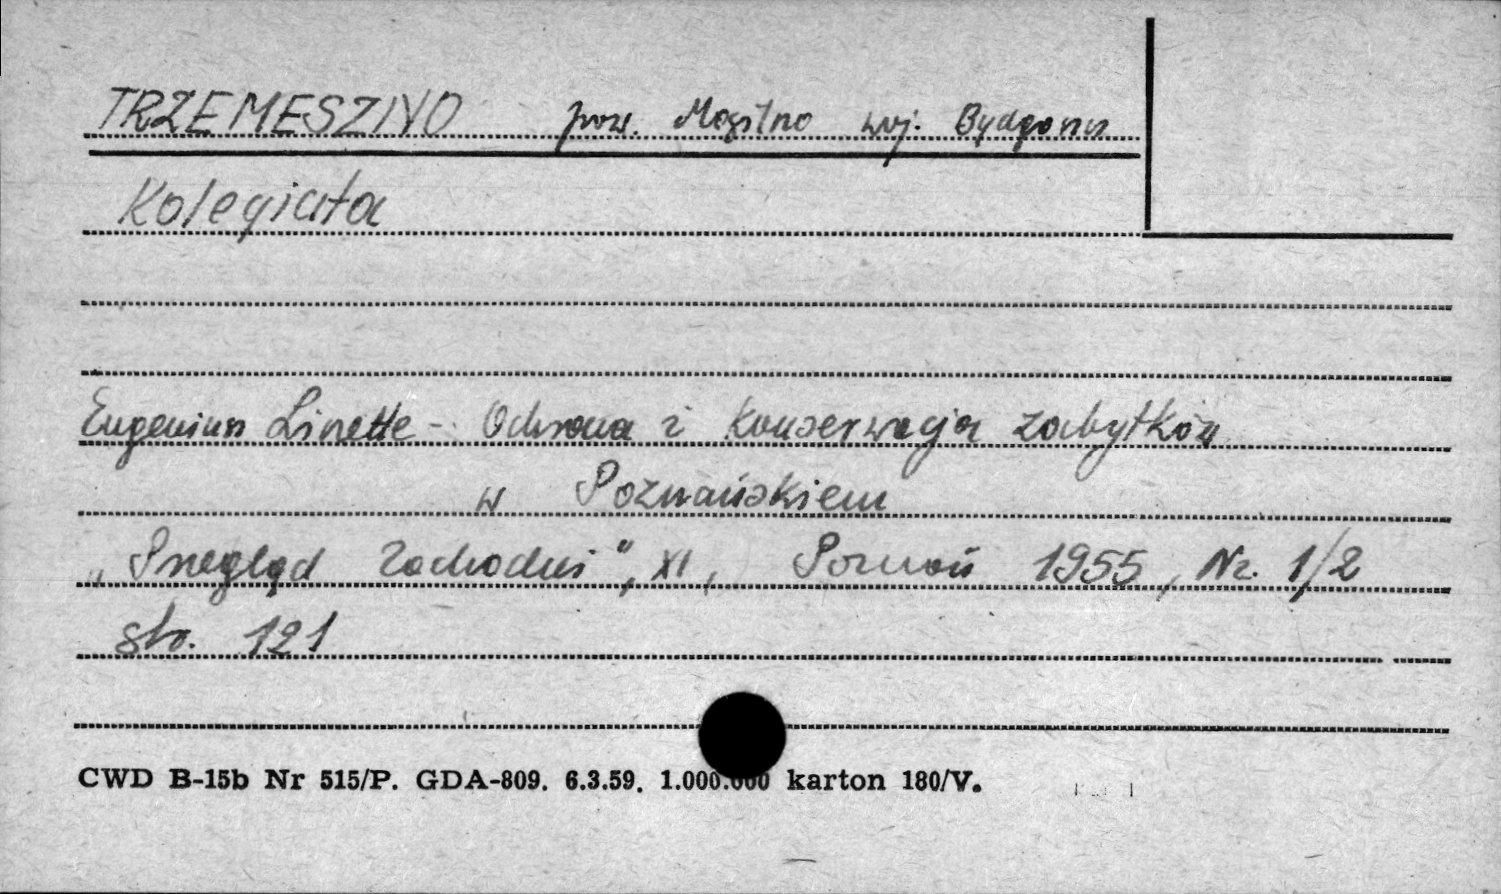 TRZEMESZNO pow. Mogilno woj. Bydgoszcz
Kolegiata
Eugeniusz Linette - Ochrona i konserwacja zabytków
w Poznańskiem
„Przegląd Zachodni", XI, Poznań 1955, Nr. 1/2
str. 121
CWD B-15b Nr 515/P. GDA-809. 6.3.59. 1.000.000 karton 180/V.